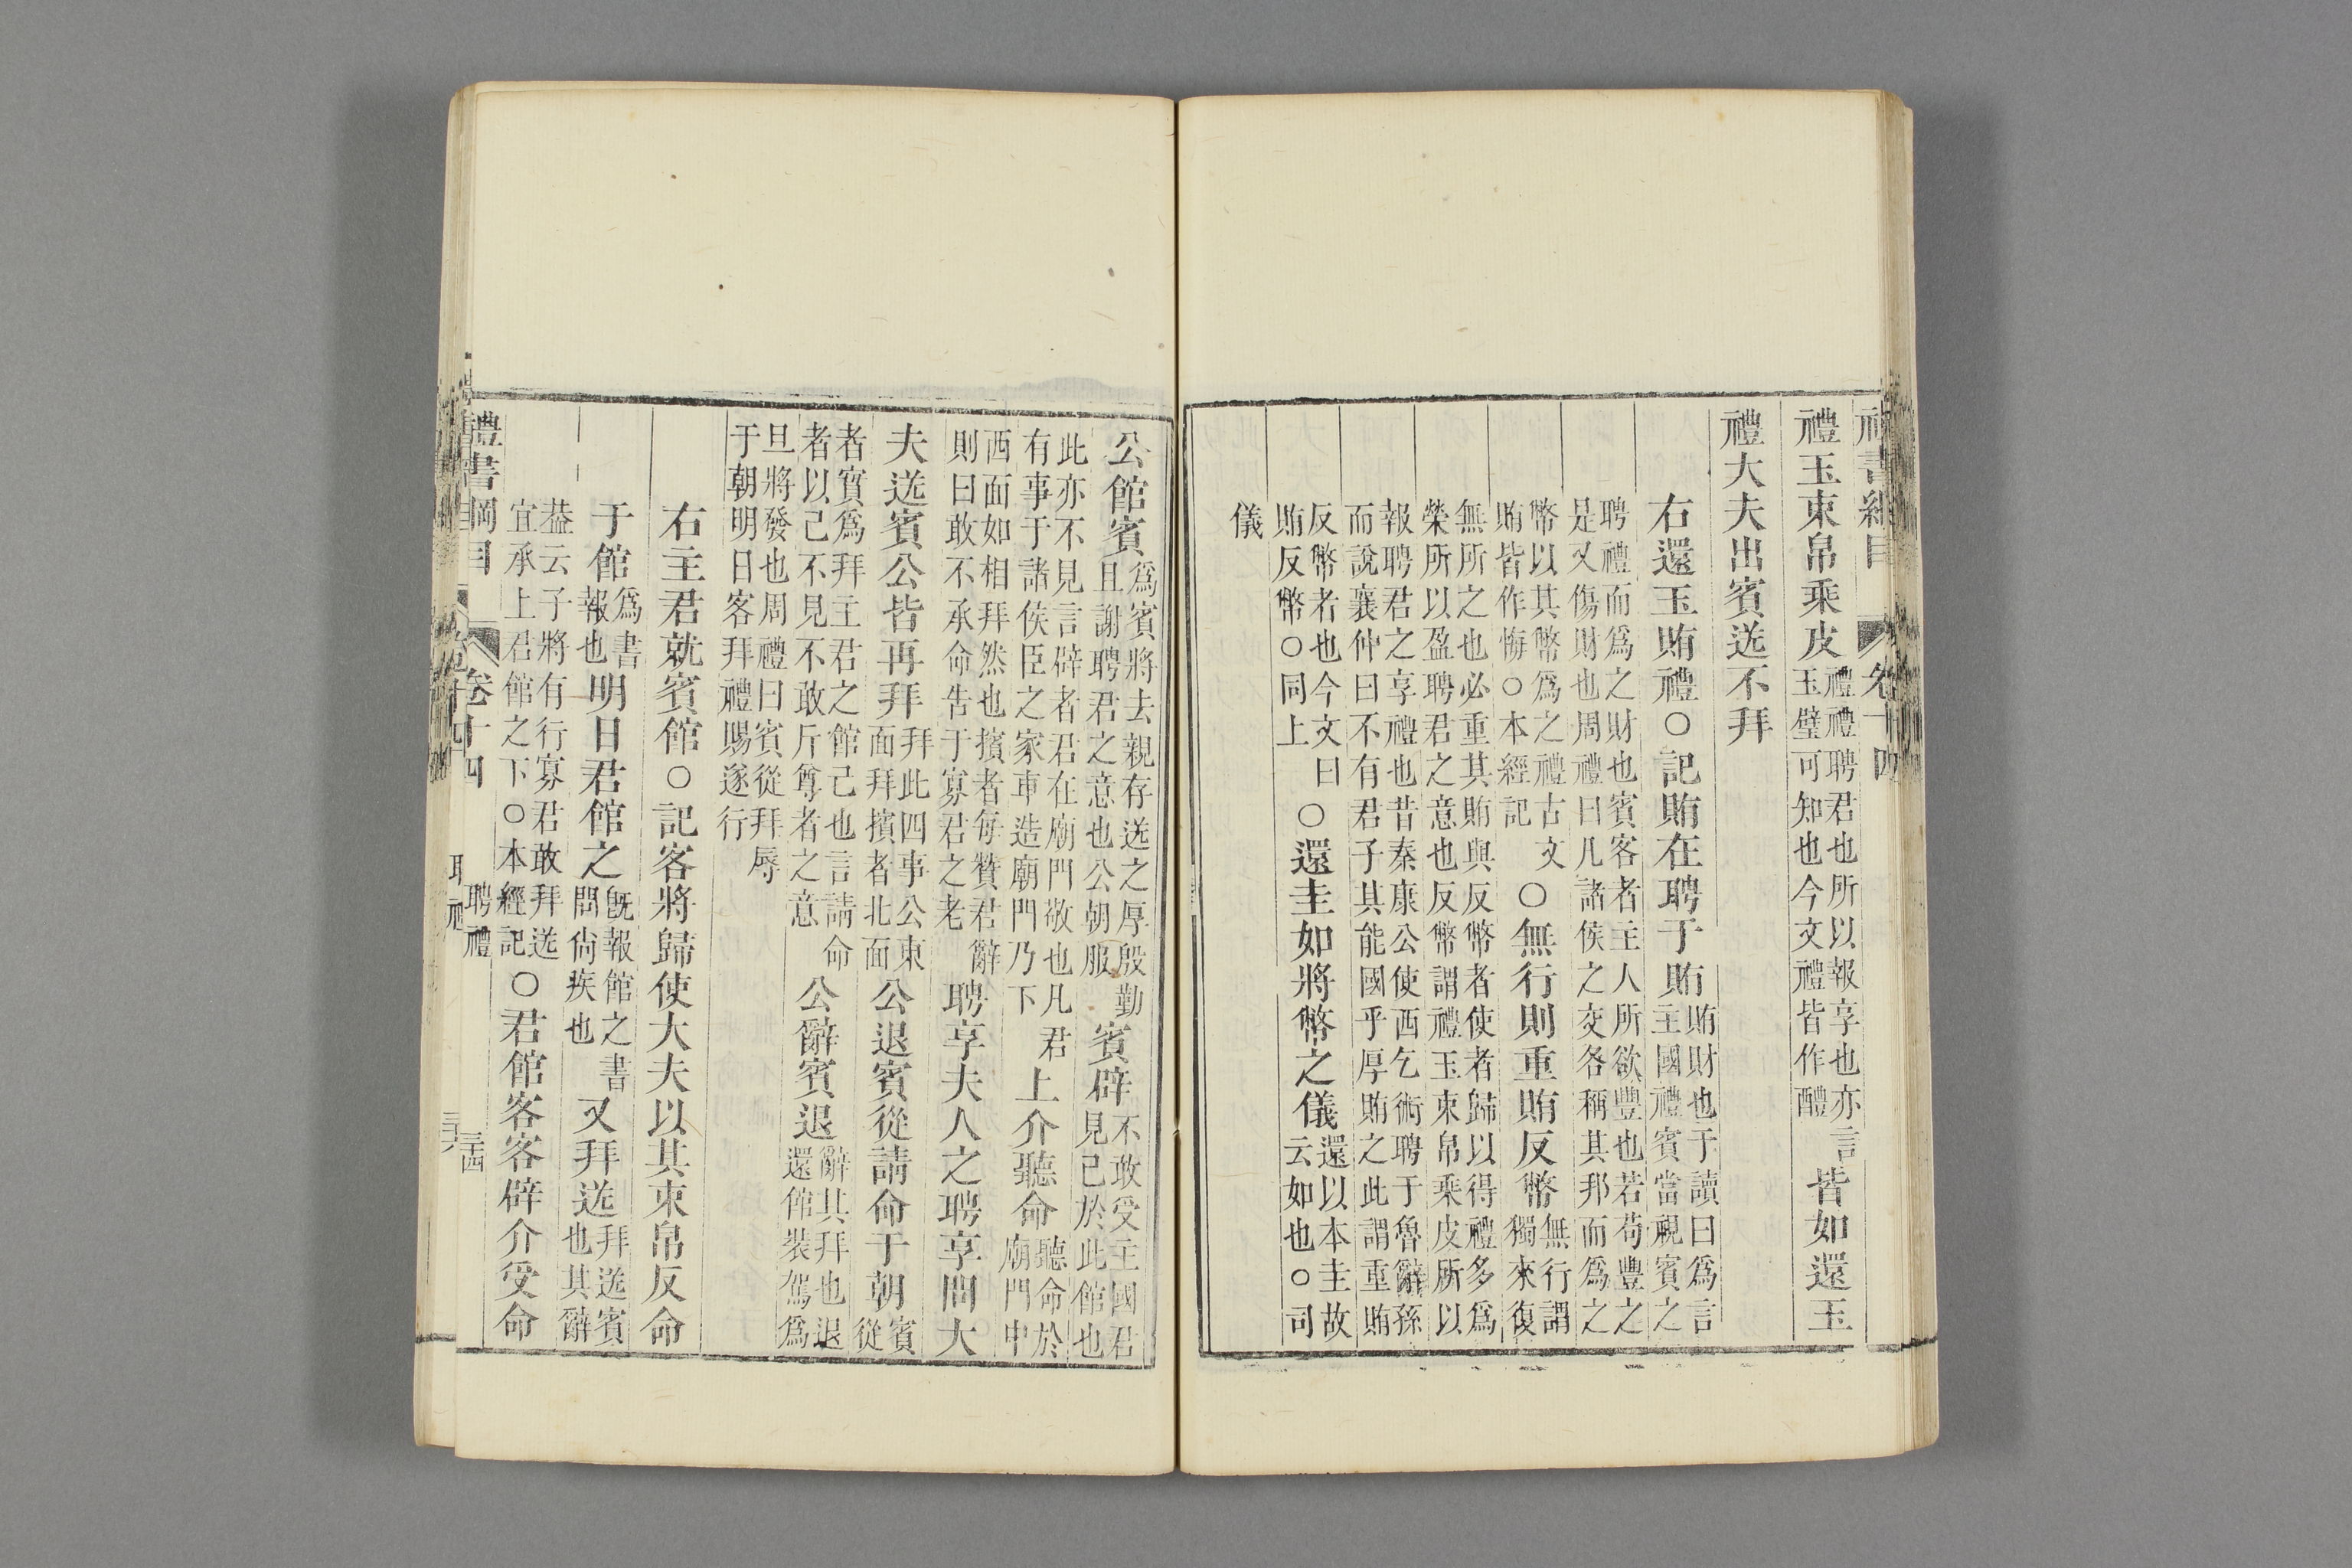 禮書綱目 卷十四
禮玉束帛乘皮
禮禮聘君也所以報享也亦言
玉璧可知也今文禮皆作醴
皆如還玉
禮大夫出賓送不拜
右還玉賄禮○記賄在聘于賄
賄財也于讀曰爲言
主國禮賓當視賓之
聘禮而爲之財也賓客者主人所欲豐也若苟豐之
是又傷財也周禮曰凡諸侯之交各稱其邦而爲之
幣以其幣爲之禮古文
賄皆作悔○本經記
○無行則重賄反幣
無行謂
獨來復
無所之也必重其賄與反幣者使者歸以得禮多爲
榮所以盈聘君之意也反幣謂禮玉束帛乘皮所以
報聘君之享禮也昔秦康公使西乞術聘于魯辭孫
而說襄仲曰不有君子其能國乎厚賄之此謂重賄
反幣者也今文曰
賄反幣○同上
○還圭如將幣之儀
還以本圭故
云如也○司
儀
公館賓
爲賓將去親存送之厚殷勤
且謝聘君之意也公朝服
賓辟
不敢受主國君
見己於此館也
此亦不見言辟者君在廟門敬也凡君
有事于諸侯臣之家車造廟門乃下
上介聽命
聽命於
廟門中
西面如相拜然也擯者每贊君辭
則曰敢不承命告于寡君之老
聘享夫人之聘享問大
夫送賓公皆再拜
拜此四事公東
面拜擯者北面
公退賓從請命于朝
賓
從
者實爲拜主君之館己也言請命
者以己不見不敢斥尊者之意
公辭賓退
辭其拜也退
還館裝駕爲
旦將發也周禮曰賓從拜辱
于朝明日客拜禮賜遂行
右主君就賓館○記客將歸使大夫以其束帛反命
于館
爲書
報也
明日君館之
旣報館之書
問尙疾也
又拜送
拜送賓
也其辭
葢云子將有行寡君敢拜送
宜承上君館之下○本經記
○君館客客辟介受命
禮書綱目 卷十四 聘禮